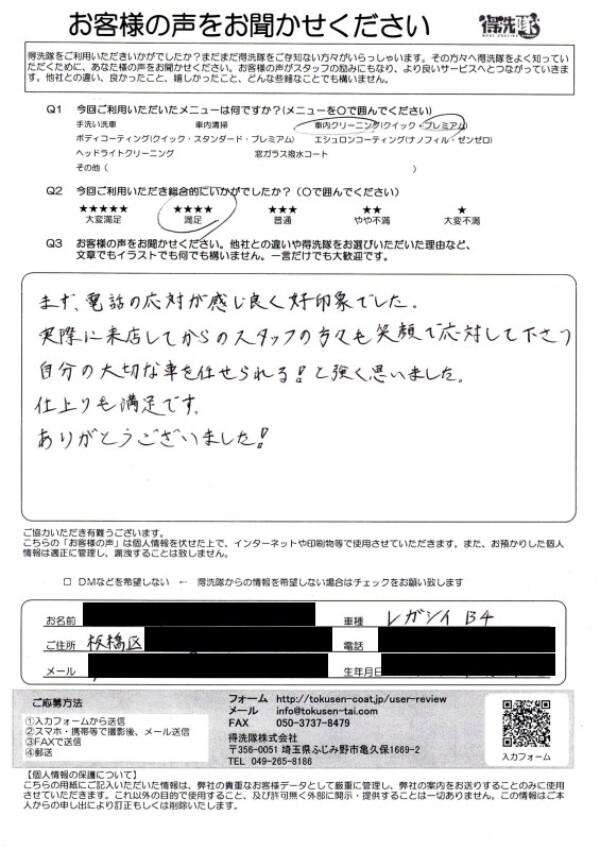 お客様の声をお聞かせください
得洗隊
得洗隊をご利用いただきいかがでしたか？まだまだ得洗隊をご存知ない方々がいらっしゃいます。その方々へ得洗隊をよく知っていただくために、あなた様の声をお聞かせください。お客様の声がスタッフの励みにもなり、より良いサービスへとつながっていきます。他社との違い、良かったこと、嬉しかったこと、どんな些細なことでも構いません。
Q1 今回ご利用いただいたメニューは何ですか？(メニューを〇で囲んでください)
手洗い洗車 車内清掃 車内クリーニング(クイック・プレミアム)
ボディコーティング(クイック・スタンダード・プレミアム) エシュロンコーティング(ナノフィル・ゼンゼロ)
ヘッドライトクリーニング 窓ガラス撥水コート
その他（ ）
Q2 今回ご利用いただき総合的にいかがでしたか？（〇で囲んでください）
★★★★★ ★★★★ ★★★ ★★ ★
大変満足 満足 普通 やや不満 大変不満
Q3 お客様の声をお聞かせください。他社との違いや得洗隊をお選びいただいた理由など、
文章でもイラストでも何でも構いません。一言だけでも大歓迎です。
まず、電話の応対が感じ良く好印象でした.
実際に来店してからのスタッフの方々も笑顔で応対して下さつ
自分の大切な車を任せられる！と強く思いました。
仕上りも満足です。
ありがとうございました！
ご協力いただき有難うございます。
こちらの「お客様の声」は個人情報を伏せた上で、インターネットや印刷物等で使用させていただきます。また、お預かりした個人
情報は適正に管理し、漏洩することは致しません。
□ DMなどを希望しない ← 得洗隊からの情報を希望しない場合はチェックをお願い致します
お名前 車種 レガシィ B4
ご住所 板橋区 電話
メール 生年月日
ご応募方法
①入力フォームから送信
②スマホ・携帯等で撮影後、メール送信
③FAXで送信
④郵送
フォーム http://tokusen-coat.jp/user-review
メール info@tokusen-tai.com
FAX 050-3737-8479
得洗隊株式会社
〒356-0051 埼玉県ふじみ野市亀久保1669-2
TEL 049-265-8186
入力フォーム
【個人情報の保護について】
こちらの用紙にご記入いただいた情報は、弊社の貴重なお客様データとして厳重に管理し、弊社の案内をお送りすることのみに使用
させていただきます。これ以外の目的で使用すること、及び許可無く外部に開示・提供することは一切ありません。この情報はご本
人からの申し出により訂正もしくは削除いたします。